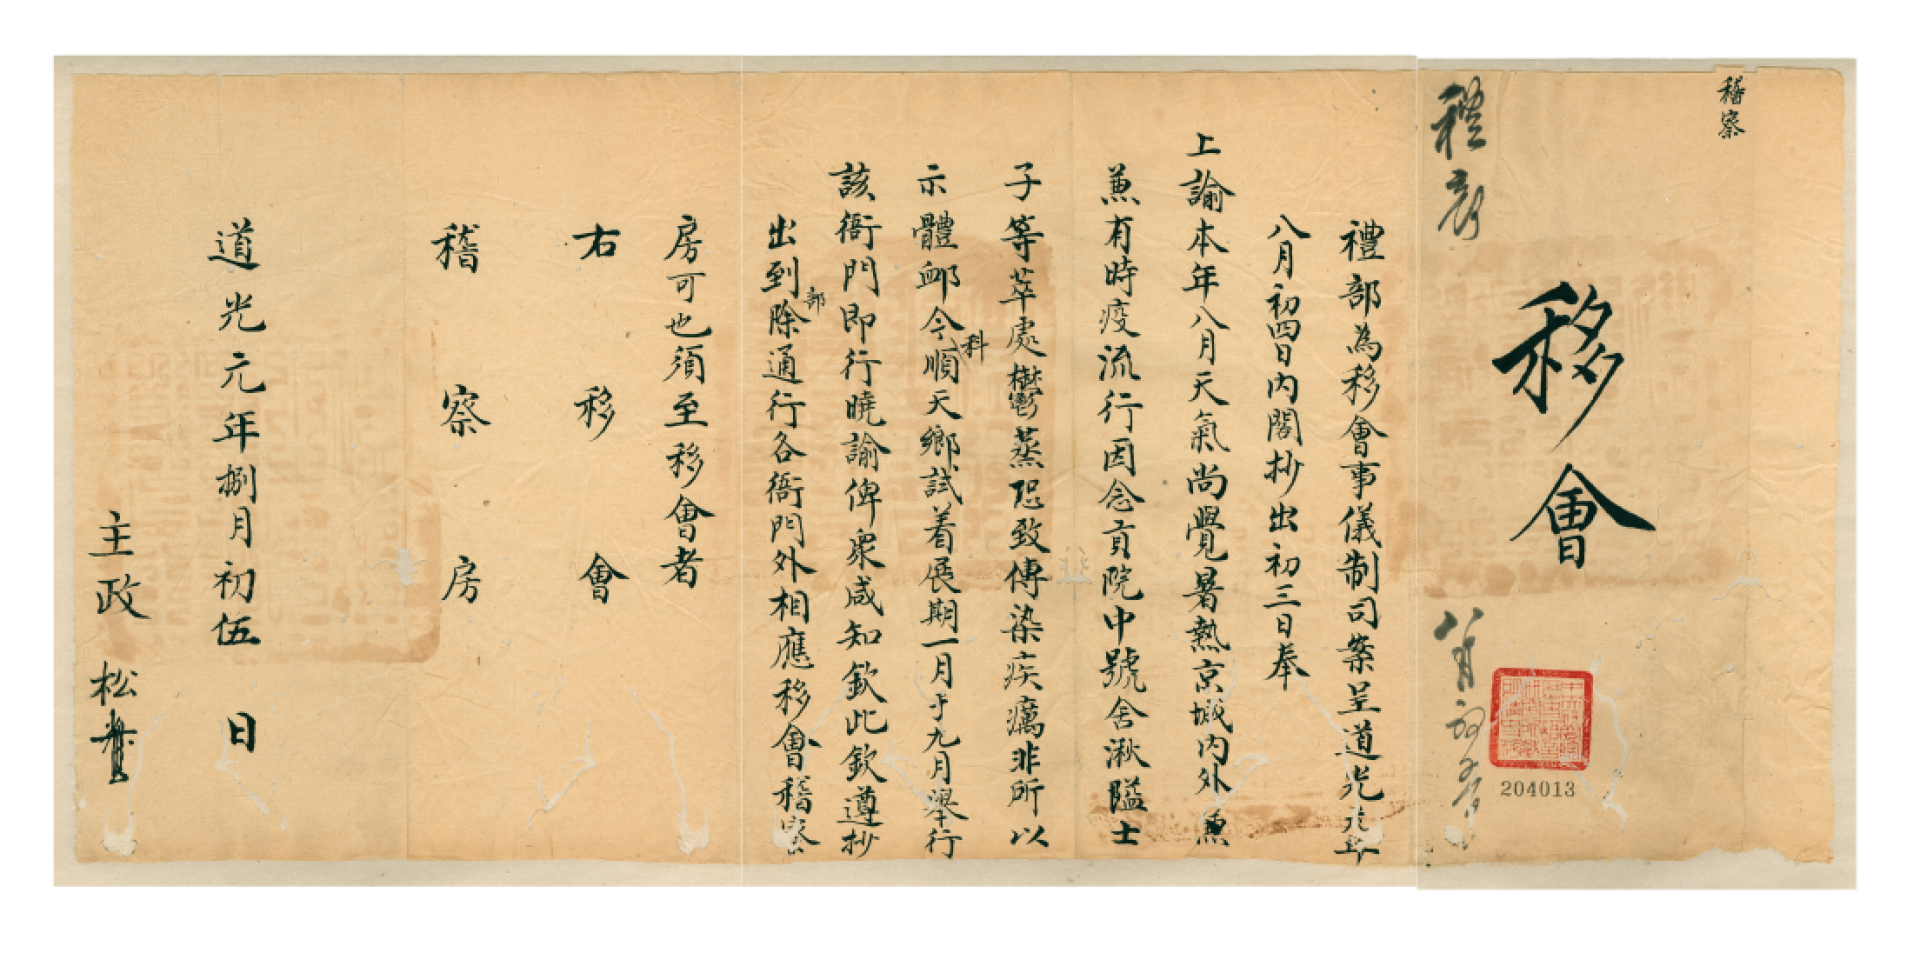 稽察
移會
204013
禮部為移會事儀制司案呈道光元年
八月初四日內閣抄出初三日奉
上諭本年八月天氣尚覺暑熱京城內外熏
蒸有時疫流行因念貢院中號舍湫隘士
子等萃處鬱蒸恐致傳染疾癘非所以
示體卹今科順天鄉試着展期一月于九月舉行
該衙門即行曉諭俾衆咸知欽此欽遵抄
出到部除通行各衙門外相應移會稽察
房可也須至移會者
右移會
稽察房
道光元年捌月初伍日
主政 松